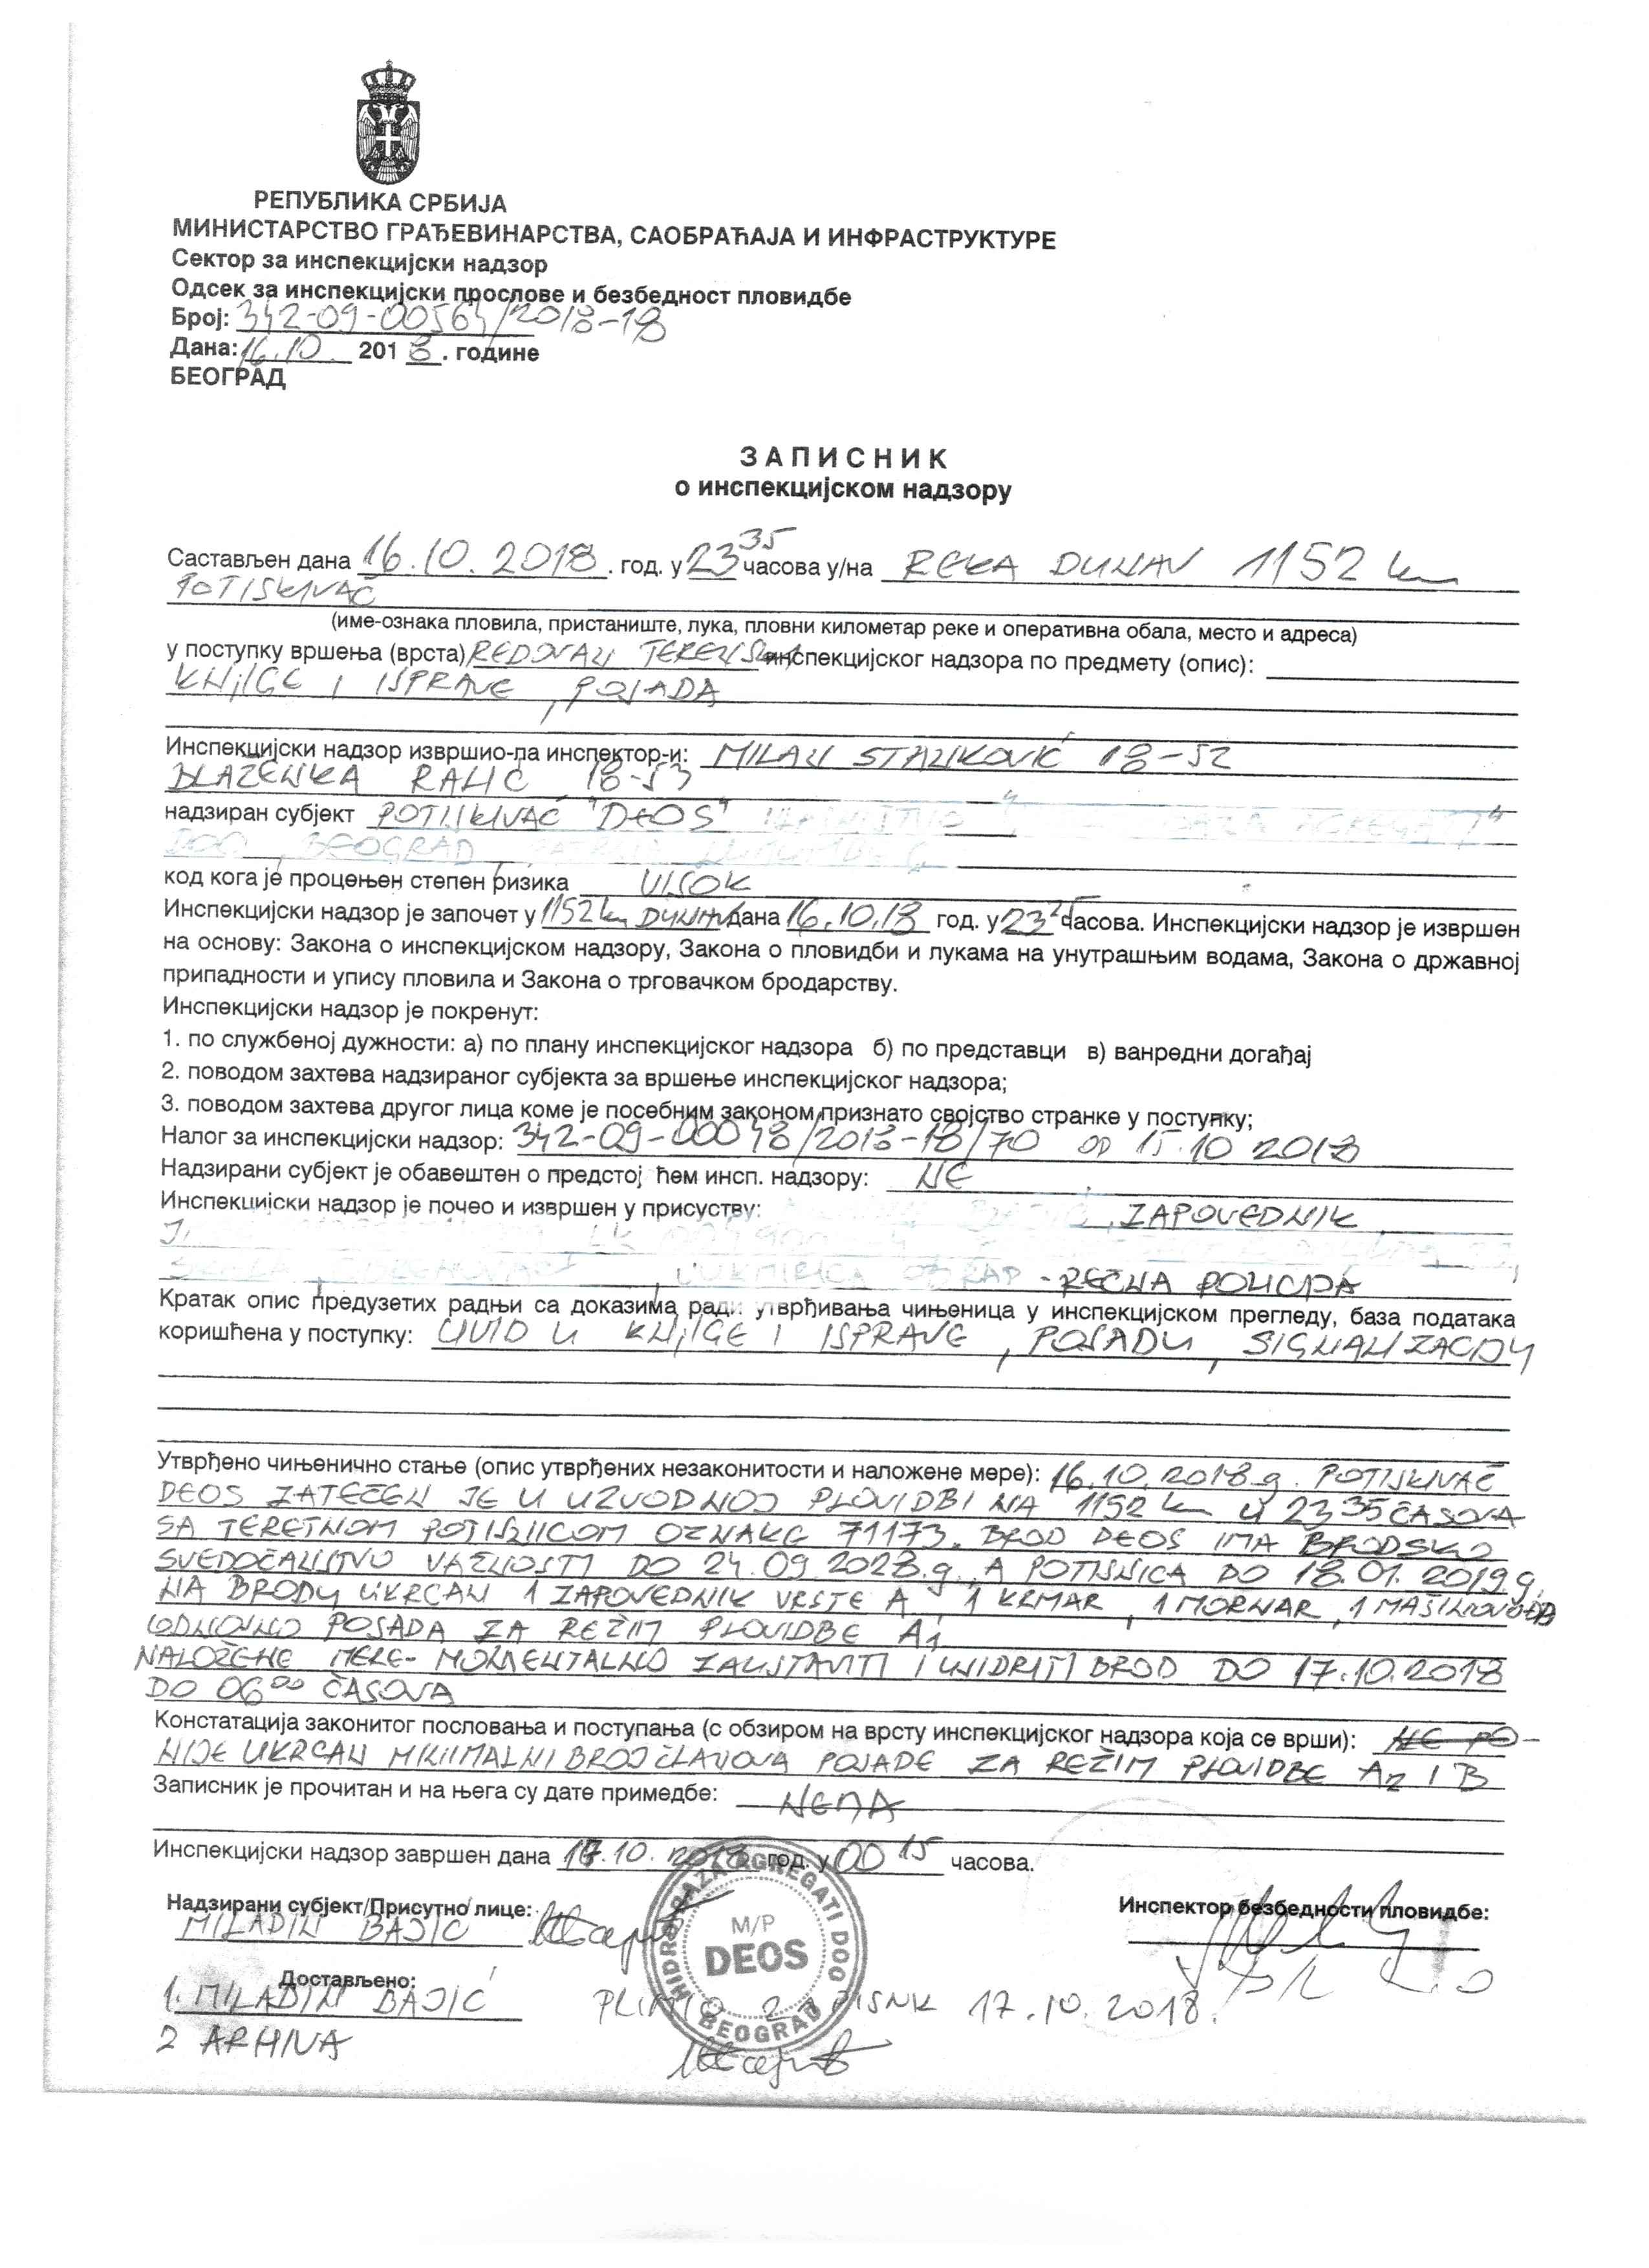 РЕПУБЛИКА СРБИЈА
МИНИСТАРСТВО ГРАЂЕВИНАРСТВА, САОБРАЋАЈА И ИНФРАСТРУКТУРЕ
Сектор за инспекцијски надзор
Одсек за инспекцијски прослове и безбедност пловидбе
Број: 342-09-00564/2018-18
Дана: 16.10. 2018. године
БЕОГРАД
ЗАПИСНИК
о инспекцијском надзору
Састављен дана 16.10.2018. год. у 23 35 часова у/на REKA DUNAV 1152 km
POTISKIVAČ
(име-ознака пловила, пристаниште, лука, пловни километар реке и оперативна обала, место и адреса)
у поступку вршења (врста) REDOVAN TERENSKI инспекцијског надзора по предмету (опис):
KNJIGE I ISPRAVE, POSADA
Инспекцијски надзор извршио-ла инспектор-и: MILAN STANKOVIĆ 18-52
BLAŽENKA RALIĆ 18-53
надзиран субјект POTISKIVAČ "DEOS" AGREGATI"
DOO, BEOGRAD
код кога је процењен степен ризика VISOK
Инспекцијски надзор је започет у 1152 km DUNAV дана 16.10.18 год. у 23 часова. Инспекцијски надзор је извршен
на основу: Закона о инспекцијском надзору, Закона о пловидби и лукама на унутрашњим водама, Закона о државној
припадности и упису пловила и Закона о трговачком бродарству.
Инспекцијски надзор је покренут:
1. по службеној дужности: а) по плану инспекцијског надзора б) по представци в) ванредни догађај
2. поводом захтева надзираног субјекта за вршење инспекцијског надзора;
3. поводом захтева другог лица коме је посебним законом признато својство странке у поступку;
Налог за инспекцијски надзор: 342-09-00048/2018-18/70 OD 15.10 2018
Надзирани субјект је обавештен о предстој ћем инсп. надзору: NE
Инспекцијски надзор је почео и извршен у присуству: ZAPOVEDNIK,
- REČNA POLICIJA
Кратак опис предузетих радњи са доказима ради утврђивања чињеница у инспекцијском прегледу, база података
коришћена у поступку: UVID U KNJIGE I ISPRAVE, POSADU, SIGNALIZACIJU
Утврђено чињенично стање (опис утврђених незаконитости и наложене мере): 16.10.2018.g. POTISKIVAČ
DEOS ZATEČEN JE U UZVODNOJ PLOVIDBI NA 1152 km U 23 35 ČASOVA
SA TERETNOM POTISNICOM OZNAKE 71173. BROD DEOS IMA BRODSKO
SVEDOČANSTVO VAŽNOSTI DO 24.09.2023.g., A POTISNICA DO 18.01.2019.g.
NA BRODU UKRCAN 1 ZAPOVEDNIK VRSTE A, 1 KRMAR, 1 MORNAR, 1 MAŠINOVOĐA
ODNOSNO POSADA ZA REŽIM PLOVIDBE A1
NALOŽENE MERE- MOMENTALNO ZAUSTAVITI I USIDRITI BROD DO 17.10.2018
DO 06 00 ČASOVA
Констатација законитог пословања и поступања (с обзиром на врсту инспекцијског надзора која се врши): NE PO-
NIJE UKRCAN MINIMALNI BROJ ČLANOVA POSADE ZA REŽIM PLOVIDBE A2 I B
Записник је прочитан и на њега су дате примедбе: NEMA
Инспекцијски надзор завршен дана 17.10.2018 год. у 00 15 часова.
Надзирани субјект/Присутно лице: Инспектор безбедности пловидбе:
MILADIN BAJIĆ
HIDROBAZA AGREGATI DOO BEOGRAD
M/P
DEOS
Достављено:
1. MILADIN BAJIĆ PRIMIO ZAPISNIK 17.10.2018.
2 ARHIVA